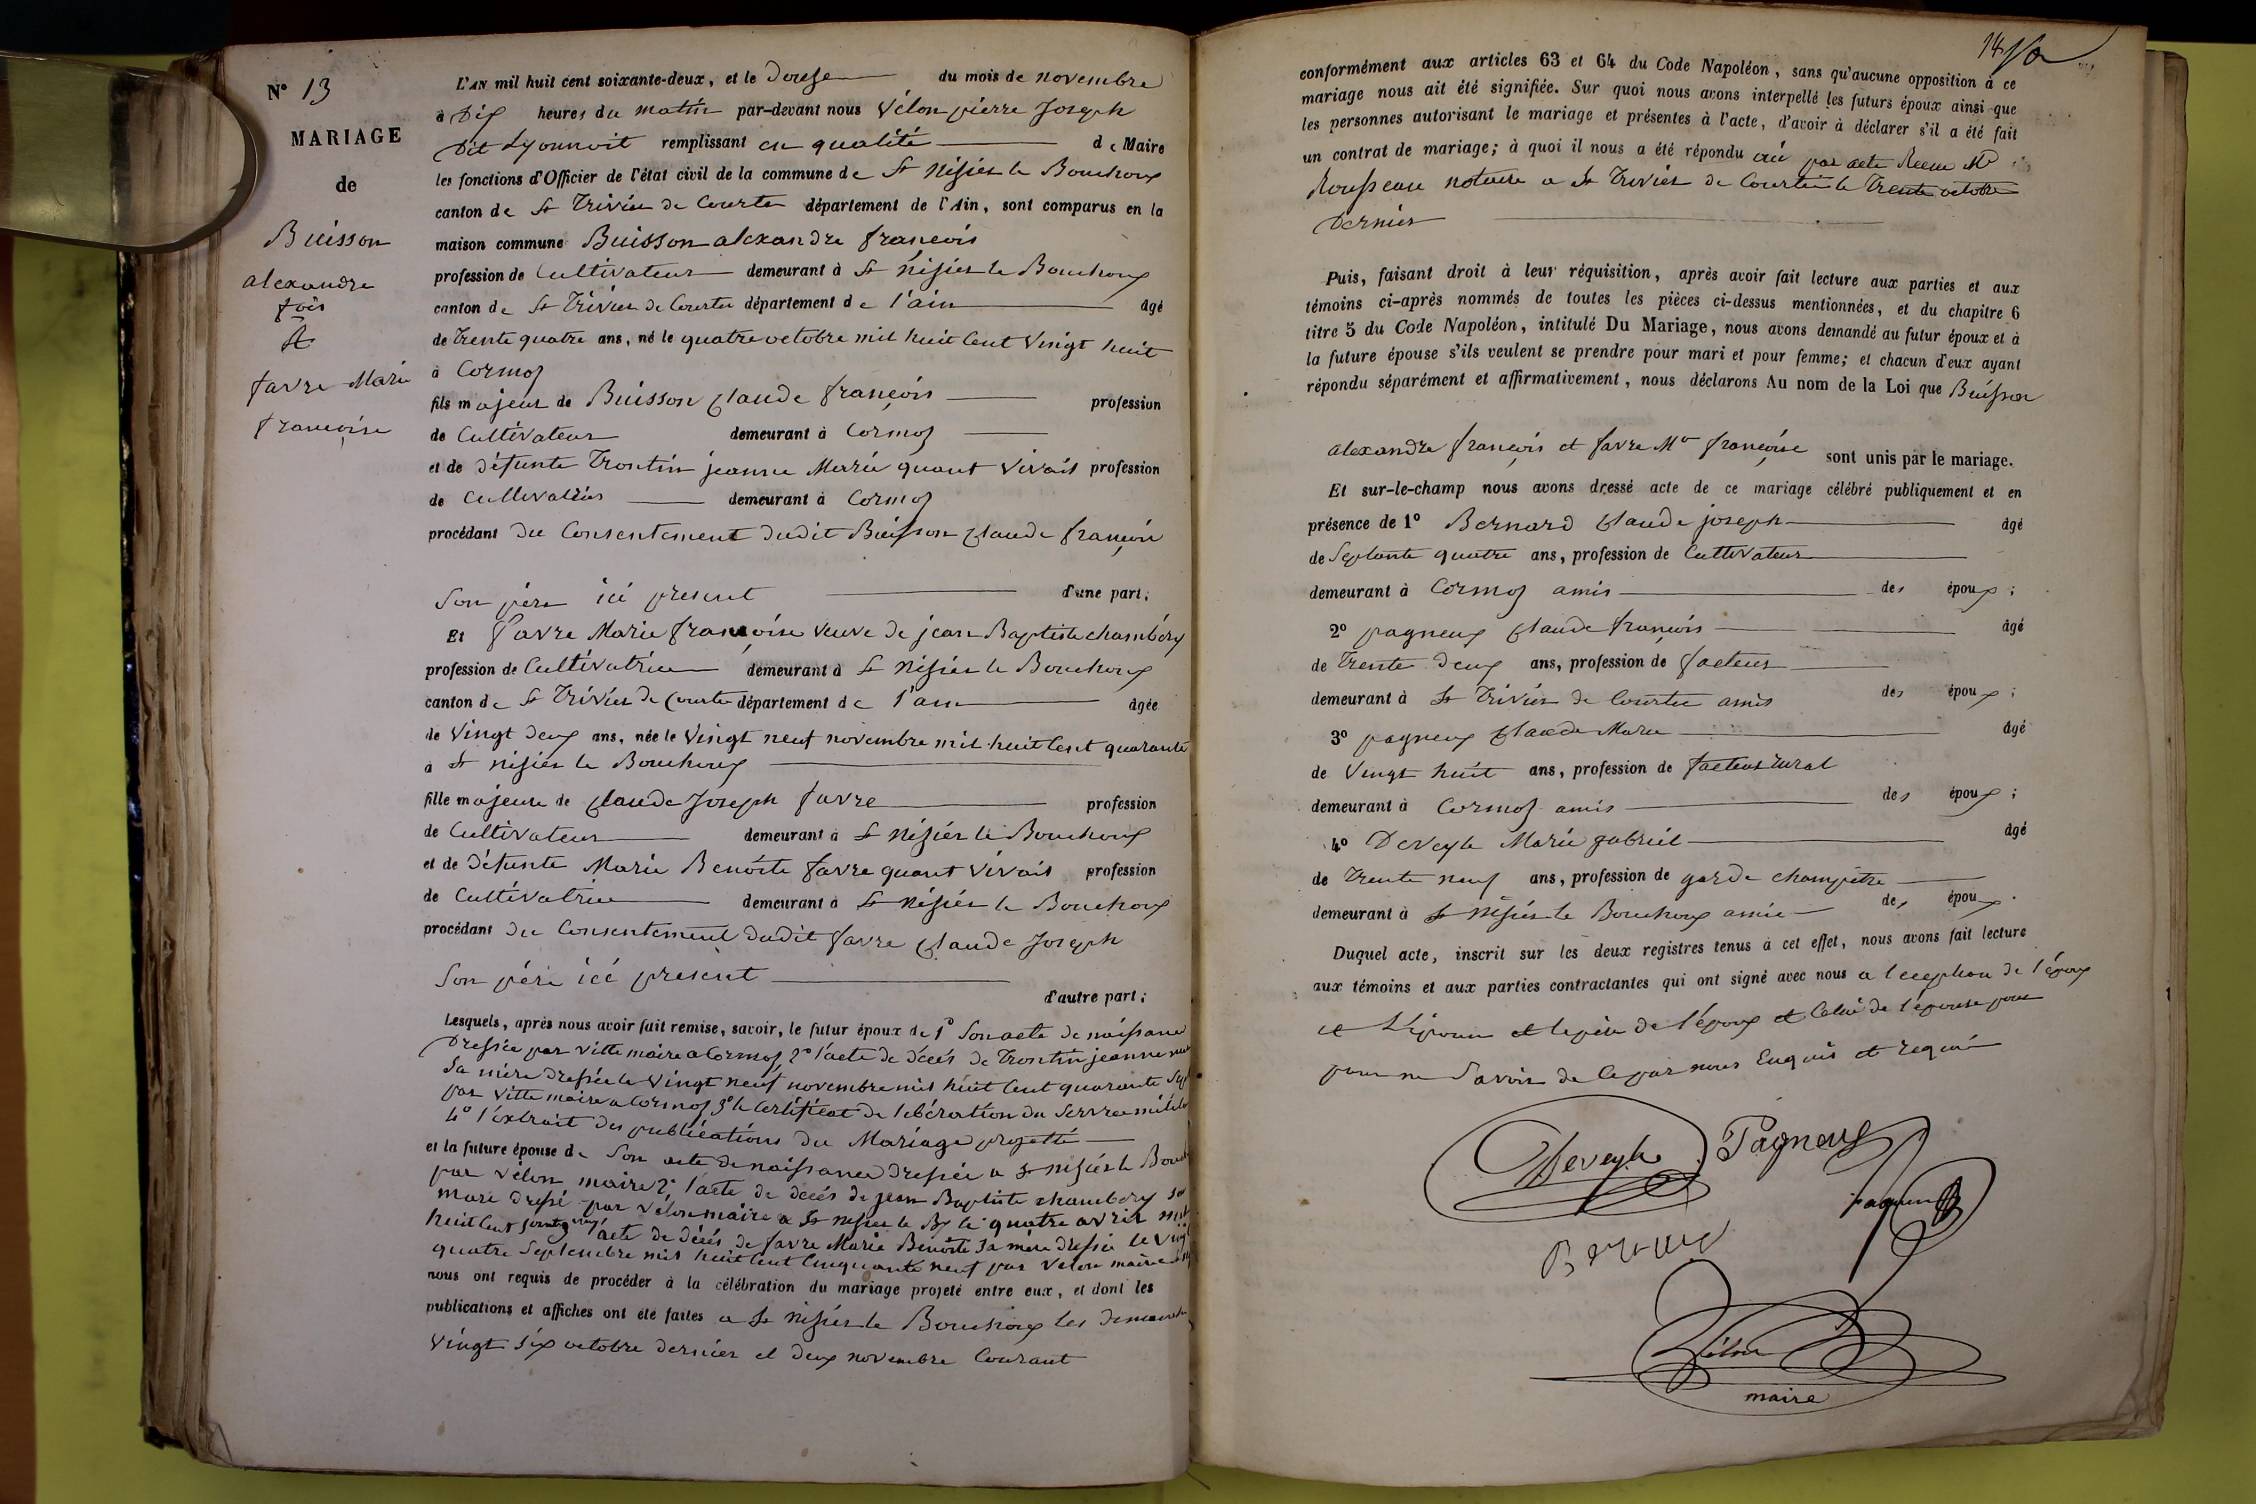 N° 13
MARIAGE
de
Buisson
alexandre
fois
&
favre Marie
francoise
L'AN mil huit cent soixante-deux, et le Douse du mois de novembre
à Dix heures du matin par-devant nous Vélon pierre Joseph
Dit Lyonnoit remplissant en qualité de Maire
les fonctions d'Officier de l'état civil de la commune de St nisier le Bouchoux
canton de St Trivier de Courtes département de l'Ain, sont comparus en la
maison commune Buisson alexandre françois
profession de Cultivateur demeurant à St nisier le Bouchoux
canton de St Trivier de Courtes département de l'ain âgé
de Trente quatre ans, né le quatre octobre mil huit Cent Vingt huit
à Cormoz
fils majeur de Buisson Claude françois profession
de Cultivateur demeurant à Cormoz
et de défunte Trontin jeanne Marie quant Vivait profession
de Cultivatrice demeurant à Cormoz
procédant du Consentement dudit Buisson Claude françois
Son père ici présent d'une part;
Et Favre Marie françoise veuve de jean Baptiste chambéry
profession de Cultivatrice demeurant à St nisier le Bouchoux
canton de St Trivier de Courtes département de l'ain âgée
de Vingt deux ans, née le Vingt neuf novembre mil huit Cent quarante
à St nisier le Bouchoux
fille majeure de Claude Joseph favre profession
de Cultivateur demeurant à St nisier le Bouchoux
et de défunte Marie Benoite favre quant Vivait profession
de Cultivatrice demeurant à St nisier le Bouchoux
procédant du Consentement dudit favre Claude Joseph
Son père ici présent
d'autre part;
Lesquels, après nous avoir fait remise, savoir, le futur époux de 1° Son acte de naissance
Dressée par Vitte maire a Cormoz, 2° l'acte de décés de Trontin jeanne
Sa mère dressée le Vingt neuf novembre mil huit Cent quarante Sept
par Vitte maire a Cormoz 3° le Certificat de libération du Service
4° l'extrait des publications du Mariage projetté
et la future épouse de Son acte de naissance dressée a St nisier le
par Vélon maire 2° l'acte de décés de jean Baptiste chambéry
mari dressé par Vélon maire a St nisier le Bx le quatre avril
huit Cent l'acte de décés de favre Marie Benoite Sa mère dressée le
quatre Septembre mil huit Cent Cinquante neuf par Velon maire
nous ont requis de procéder à la célébration du mariage projeté entre eux, et dont les
publications et affiches ont été faites a St nisier le Bouchoux les
Vingt Six octobre dernier et deux novembre Courant
conformément aux articles 63 et 64 du Code Napoléon, sans qu'aucune opposition à ce
mariage nous ait été signifiée. Sur quoi nous avons interpellé les futurs époux ainsi que
les personnes autorisant le mariage et présentes à l'acte, d'avoir à déclarer s'il a été fait
un contrat de mariage; à quoi il nous a été répondu par acte Recu Me
Rousseau notaire a St Trivier de Courtes le Trente octobre
Dernier
Puis, faisant droit à leur réquisition, après avoir fait lecture aux parties et aux
témoins ci-après nommés de toutes les pièces ci-dessus mentionnées, et du chapitre 6
titre 5 du Code Napoléon, intitulé Du Mariage, nous avons demandé au futur époux et à
la future épouse s'ils veulent se prendre pour mari et pour femme; et chacun d'eux ayant
répondu séparément et affirmativement, nous déclarons Au nom de la Loi que Buisson
alexandre françois et favre Mie françoise sont unis par le mariage.
Et sur-le-champ nous avons dressé acte de ce mariage célébré publiquement et en
présence de 1° Bernard Claude joseph âgé
de Septante quatre ans, profession de Cultivateur
demeurant à Cormoz amis des époux;
2° pagneux Claude françois âgé
de Trente deux ans, profession de facteur
demeurant à St Trivier de Courtes amis des époux;
3° pagneux Claude Marie âgé
de Vingt huit ans, profession de facteur rural
demeurant à Cormoz amis des époux;
4° Deveyle Marie gabriel âgé
de Trente neuf ans, profession de garde champêtre
demeurant à St nisier le Bouchoux amis des époux.
Duquel acte, inscrit sur les deux registres tenus à cet effet, nous avons fait lecture
aux témoins et aux parties contractantes qui ont signé avec nous a l'eception de l'époux
et L'épouse et le père de l'époux et Celui de l'épouse pour
pour ne Savoir de Ce par nous Enquis et requis
Deveyle Pagneux
pagneux
Bernard
Vélon
maire